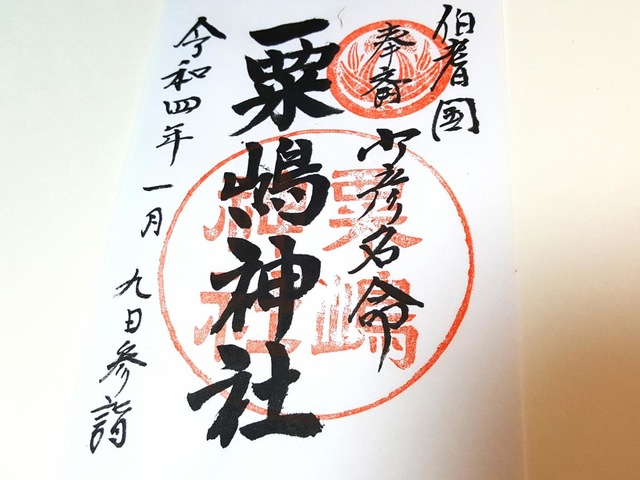 伯耆国
奉斎 少彦名命
粟嶋神社
粟嶋
神社
令和四年一月九日参詣